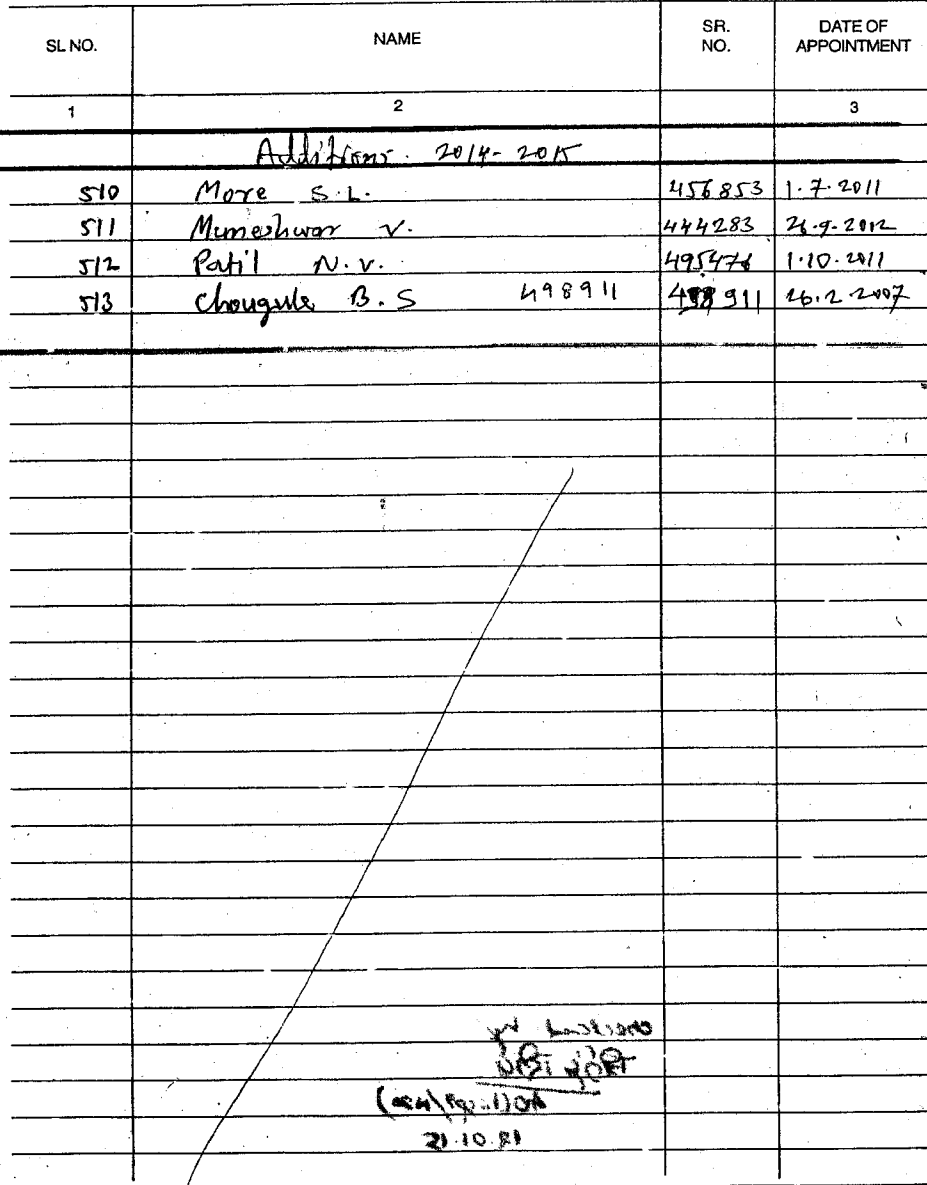 SL NO. NAME SR. NO. DATE OF APPOINTMENT
1 2 3
Additions. 2014-2015
510 More S.L. 456853 1.7.2011
511 Muneshwar V. 444283 26.9.2012
512 Patil N.V. 495476 1.10.2011
513 Chougule B.S 498911 498911 26.2.2007